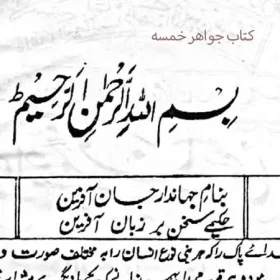 کتاب جواهر خمسه
بسم الله الرحمن الرحیم ط
بنام جهاندار جان آفرین
حکیمے سخن بر زبان آفرین
خدائے پاک را که هر بنی نوع انسان را به مختلف صورت و